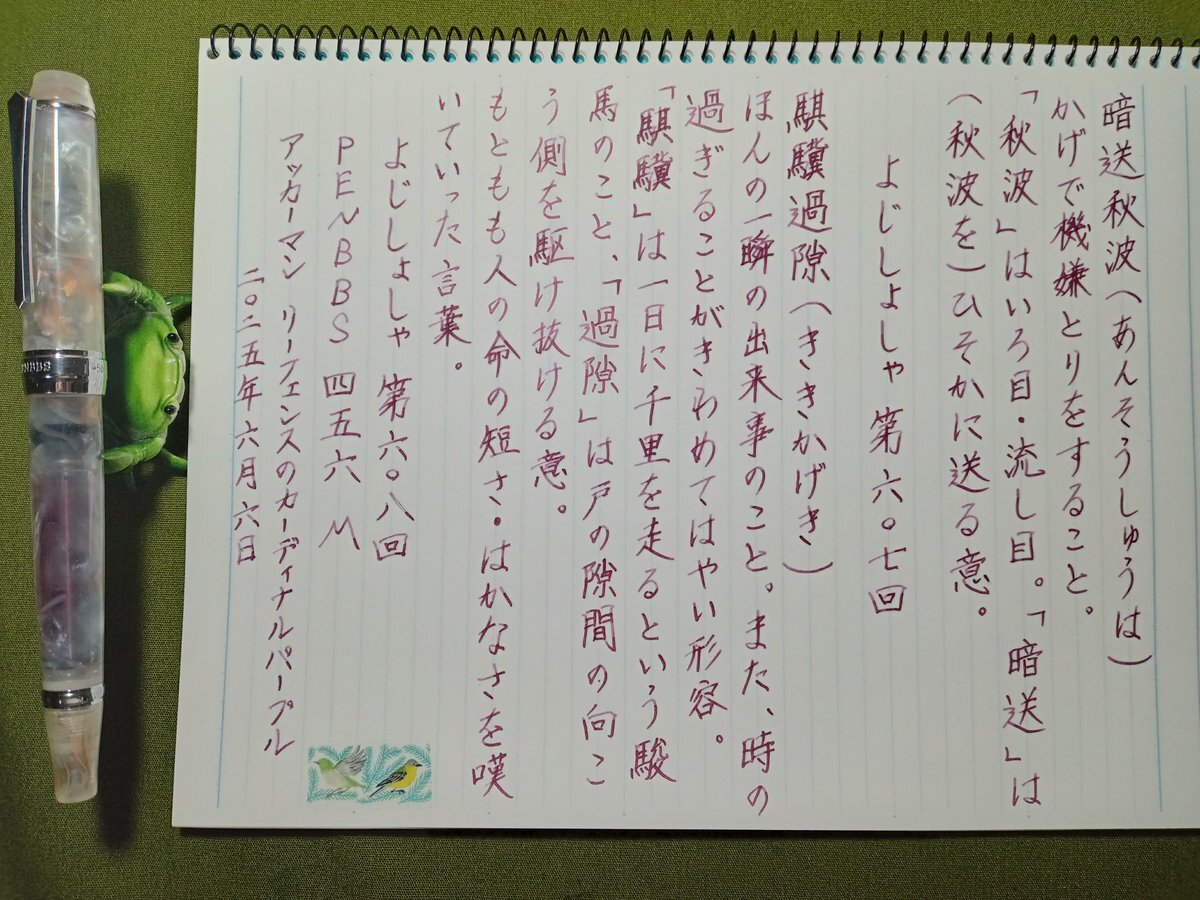 暗送秋波(あんそうしゅうは)
かげで機嫌とりをすること。
「秋波」はいろ目・流し目。「暗送」は
(秋波を)ひそかに送る意。
よじしょしゃ 第六〇七回
騏驥過隙(ききかげき)
ほんの一瞬の出来事のこと。また、時の
過ぎることがきわめてはやい形容。
「騏驥」は一日に千里を走るという駿
馬のこと、「過隙」は戸の隙間の向こ
う側を駆け抜ける意。
もともも人の命の短さ・はかなさを嘆
いていった言葉。
よじしょしゃ 第六〇八回
PENBBS 四五六 M
アッカーマン リーフェンスのカーディナルパープル
二〇二五年六月六日